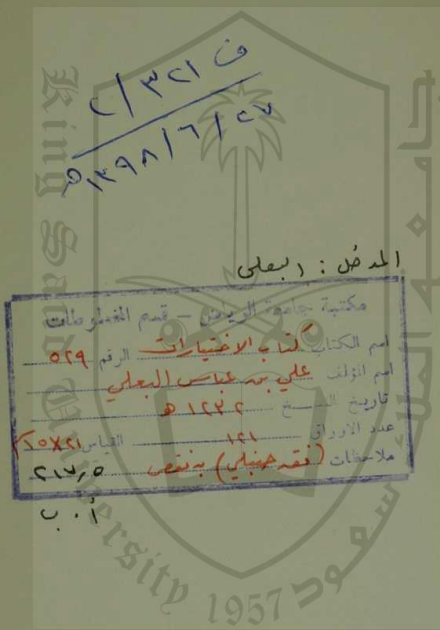 ف ٣٢١ / ٢
٢٧ / ٦ / ١٣٩٨ هـ
المدخل : البعلي
مكتبة جامعة الرياض - قسم المخطوطات
اسم الكتاب كتاب الاختيارات الرقم ٥٢٩
اسم المؤلف علي بن عباس البعلي
تاريخ النسخ ١٢٣٢ هـ
عدد الأوراق ١٢١ القياس
ملاحظات (فقه حنبلي) به نقص ٢١٧٫٥
أ . ب
King Saud University
1957